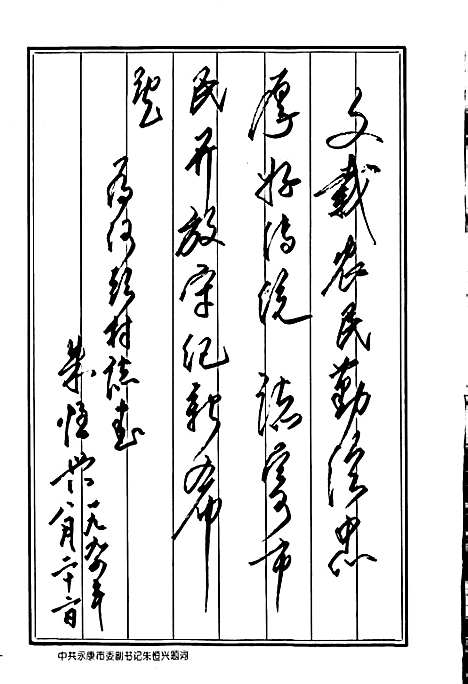 文载农民勤俭忠
厚好传统 誌写市
民开放守纪新希
望
为河头村誌书
朱恒兴 一九九四年
八月二十二日
中共永康市委副书记朱恒兴题词